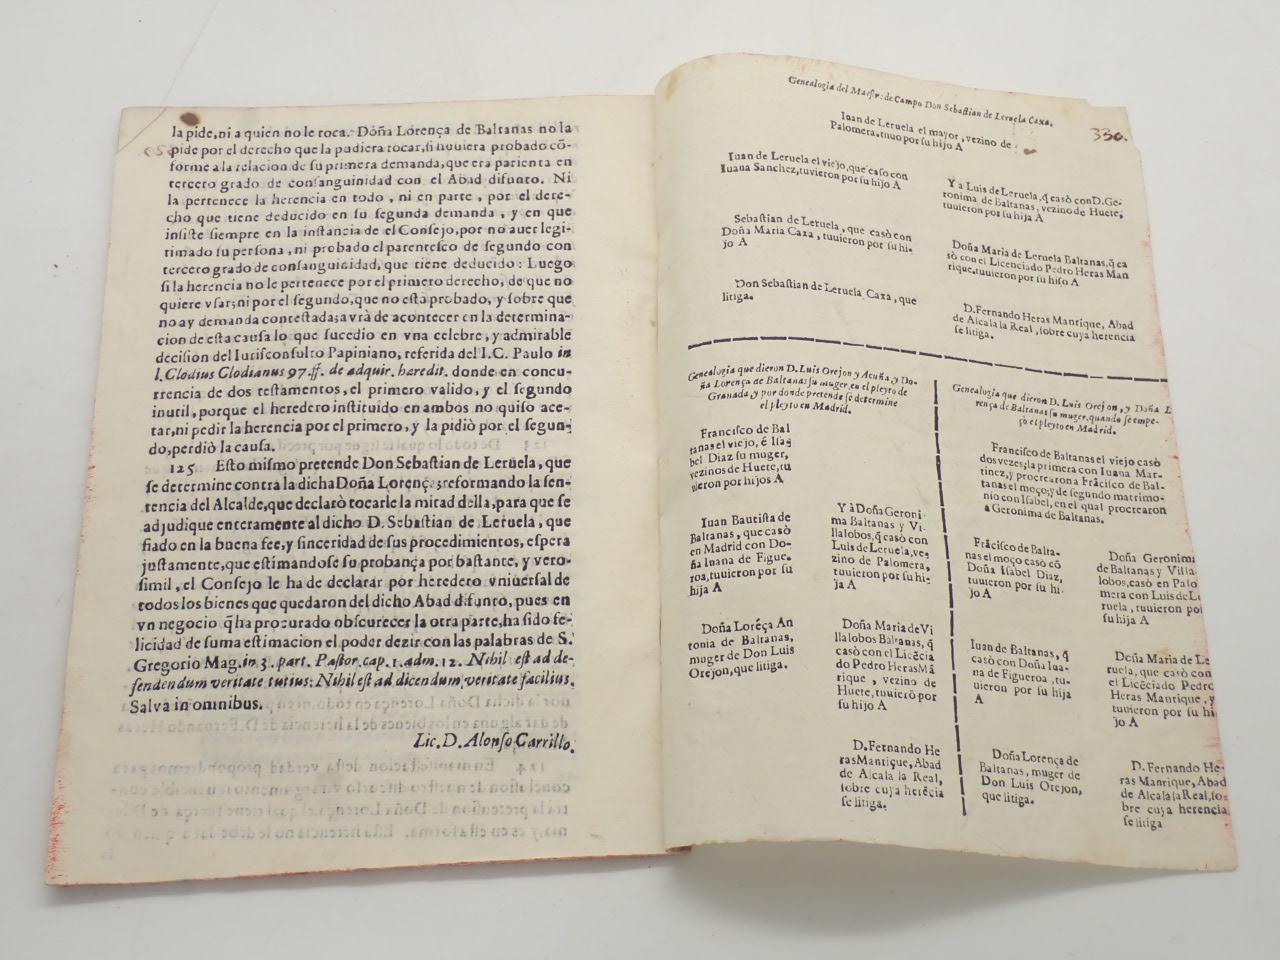 la pide, ni a quien no le toca. Doña Lorença de Baltanas no la
pide por el derecho que la pudiera tocar, si huuiera probado cõ-
forme a la relacion de su primera demanda, que era parienta en
tercero grado de consanguinidad con el Abad difunto. Ni
la pertenece la herencia en todo, ni en parte, por el dere-
cho que tiene deducido en su segunda demanda, y en que
insiste siempre en la instancia de el Consejo, por no auer legi-
timado su persona, ni probado el parentesco de segundo con
tercero grado de consanguinidad, que tiene deducido: Luego
si la herencia no le pertenece por el primero derecho, de que no
quiere vsar; ni por el segundo, que no està probado, y sobre que
no ay demanda contestada; avrà de acontecer en la determina-
cion de esta causa lo que sucedio en vna celebre, y admirable
decision del Iurisconsulto Papiniano, referida del I.C. Paulo in
l. Clodius Clodianus 97. ff. de adquir. heredit. donde en concu-
rrencia de dos testamentos, el primero valido, y el segundo
inutil, porque el heredero instituido en ambos no quiso ace-
tar, ni pedir la herencia por el primero, y la pidiò por el segun-
do, perdiò la causa.
125 Esto mismo pretende Don Sebastian de Leruela, que
se determine contra la dicha Doña Lorença; reformando la sen-
tencia del Alcalde, que declarò tocarle la mitad della, para que se
adjudique enteramente al dicho D. Sebastian de Leruela, que
fiado en la buena fee, y sinceridad de sus procedimientos, espera
justamente, que estimandose su probança por bastante, y vero-
simil, el Consejo le ha de declarar por heredero vniuersal de
todos los bienes que quedaron del dicho Abad difunto, pues en
vn negocio q̃ ha procurado obscurecer la otra parte, ha sido fe-
licidad de suma estimacion el poder dezir con las palabras de S.
Gregorio Mag. in 3. part. Pastor. cap. 1. adm. 12. Nihil est ad de-
fendendum veritate tutius: Nihil est ad dicendum veritate facilius.
Salva in omnibus.
Lic. D. Alonso Carrillo.
Genealogia del Maestr. de Campo Don Sebastian de Leruela Caxa.
330.
Iuan de Leruela el mayor, vezino de
Palomera, tuuo por su hijo A
Iuan de Leruela el viejo, que caso con
Iuana Sanchez, tuvieron por su hijo A
Y a Luis de Leruela, q̃ casò con D. Ge-
ronima de Baltanas, vezino de Huete,
tuuieron por su hija A
Sebastian de Leruela, que casò con
Doña Maria Caxa, tuuieron por su hi-
jo A
Doña Maria de Leruela Baltanas, q̃ ca
sò con el Licenciado Pedro Heras Man
rique, tuuieron por su hijo A
Don Sebastian de Leruela Caxa, que
litiga.
D. Fernando Heras Manrique, Abad
de Alcala la Real, sobre cuya herencia
se litiga.
Genealogia que dieron D. Luis Orejon y Acuña, y Do-
ña Lorença de Baltanas su muger, en el pleyto de
Granada, y por donde pretende se determine
el pleyto en Madrid.
Francisco de Bal
tanas el viejo, è Isa-
bel Diaz su muger,
vezinos de Huete, tu
uieron por hijos A
Iuan Bautista de
Baltanas, que casò
en Madrid con Do-
ña Iuana de Figue-
roa, tuuieron por su
hija A
Y à Doña Geroni-
ma Baltanas y Vi-
llalobos, q̃ casò con
Luis de Leruela, ve-
zino de Palomera,
tuuieron por su hi-
ja A
Doña Lorẽça An
tonia de Baltanas,
muger de Don Luis
Orejon, que litiga.
Doña Maria de Vi
llalobos Baltanas, q̃
casò con el Licẽcia
do Pedro Heras Mã
rique, vezino de
Huete, tuuierõ por
su hijo A
D. Fernando He
ras Manrique, Abad
de Alcala la Real,
sobre cuya herẽcia
se litiga.
Genealogia que dieron D. Luis Orejon, y Doña L
rença de Baltanas su muger, quando se empe-
çò el pleyto en Madrid.
Francisco de Baltanas el viejo casò
dos vezes; la primera con Iuana Mar-
tinez, y procrearon a Frãcisco de Bal-
tanas el moço; y de segundo matrimo-
nio con Isabel, en el qual procrearon
a Geronima de Baltanas.
Frãcisco de Balta-
nas el moço casò cõ
Doña Isabel Diaz,
tuuieron por su hi-
jo A
Doña Geronima
de Baltanas y Villa-
lobos, casò en Palo
mera con Luis de Le
ruela, tuuieron por
su hija A
Iuan de Baltanas, q̃
casò con Doña Iua-
na de Figueroa, tu-
uieron por su hija
A
Doña Maria de Le
ruela, que casò con
el Licẽciado Pedro
Heras Manrique, y
tuuieron por su hi
jo A
Doña Lorença de
Baltanas, muger de
Don Luis Orejon,
que litiga.
D. Fernando He-
ras Manrique, Abad
de Alcala la Real, so-
bre cuya herencia
se litiga